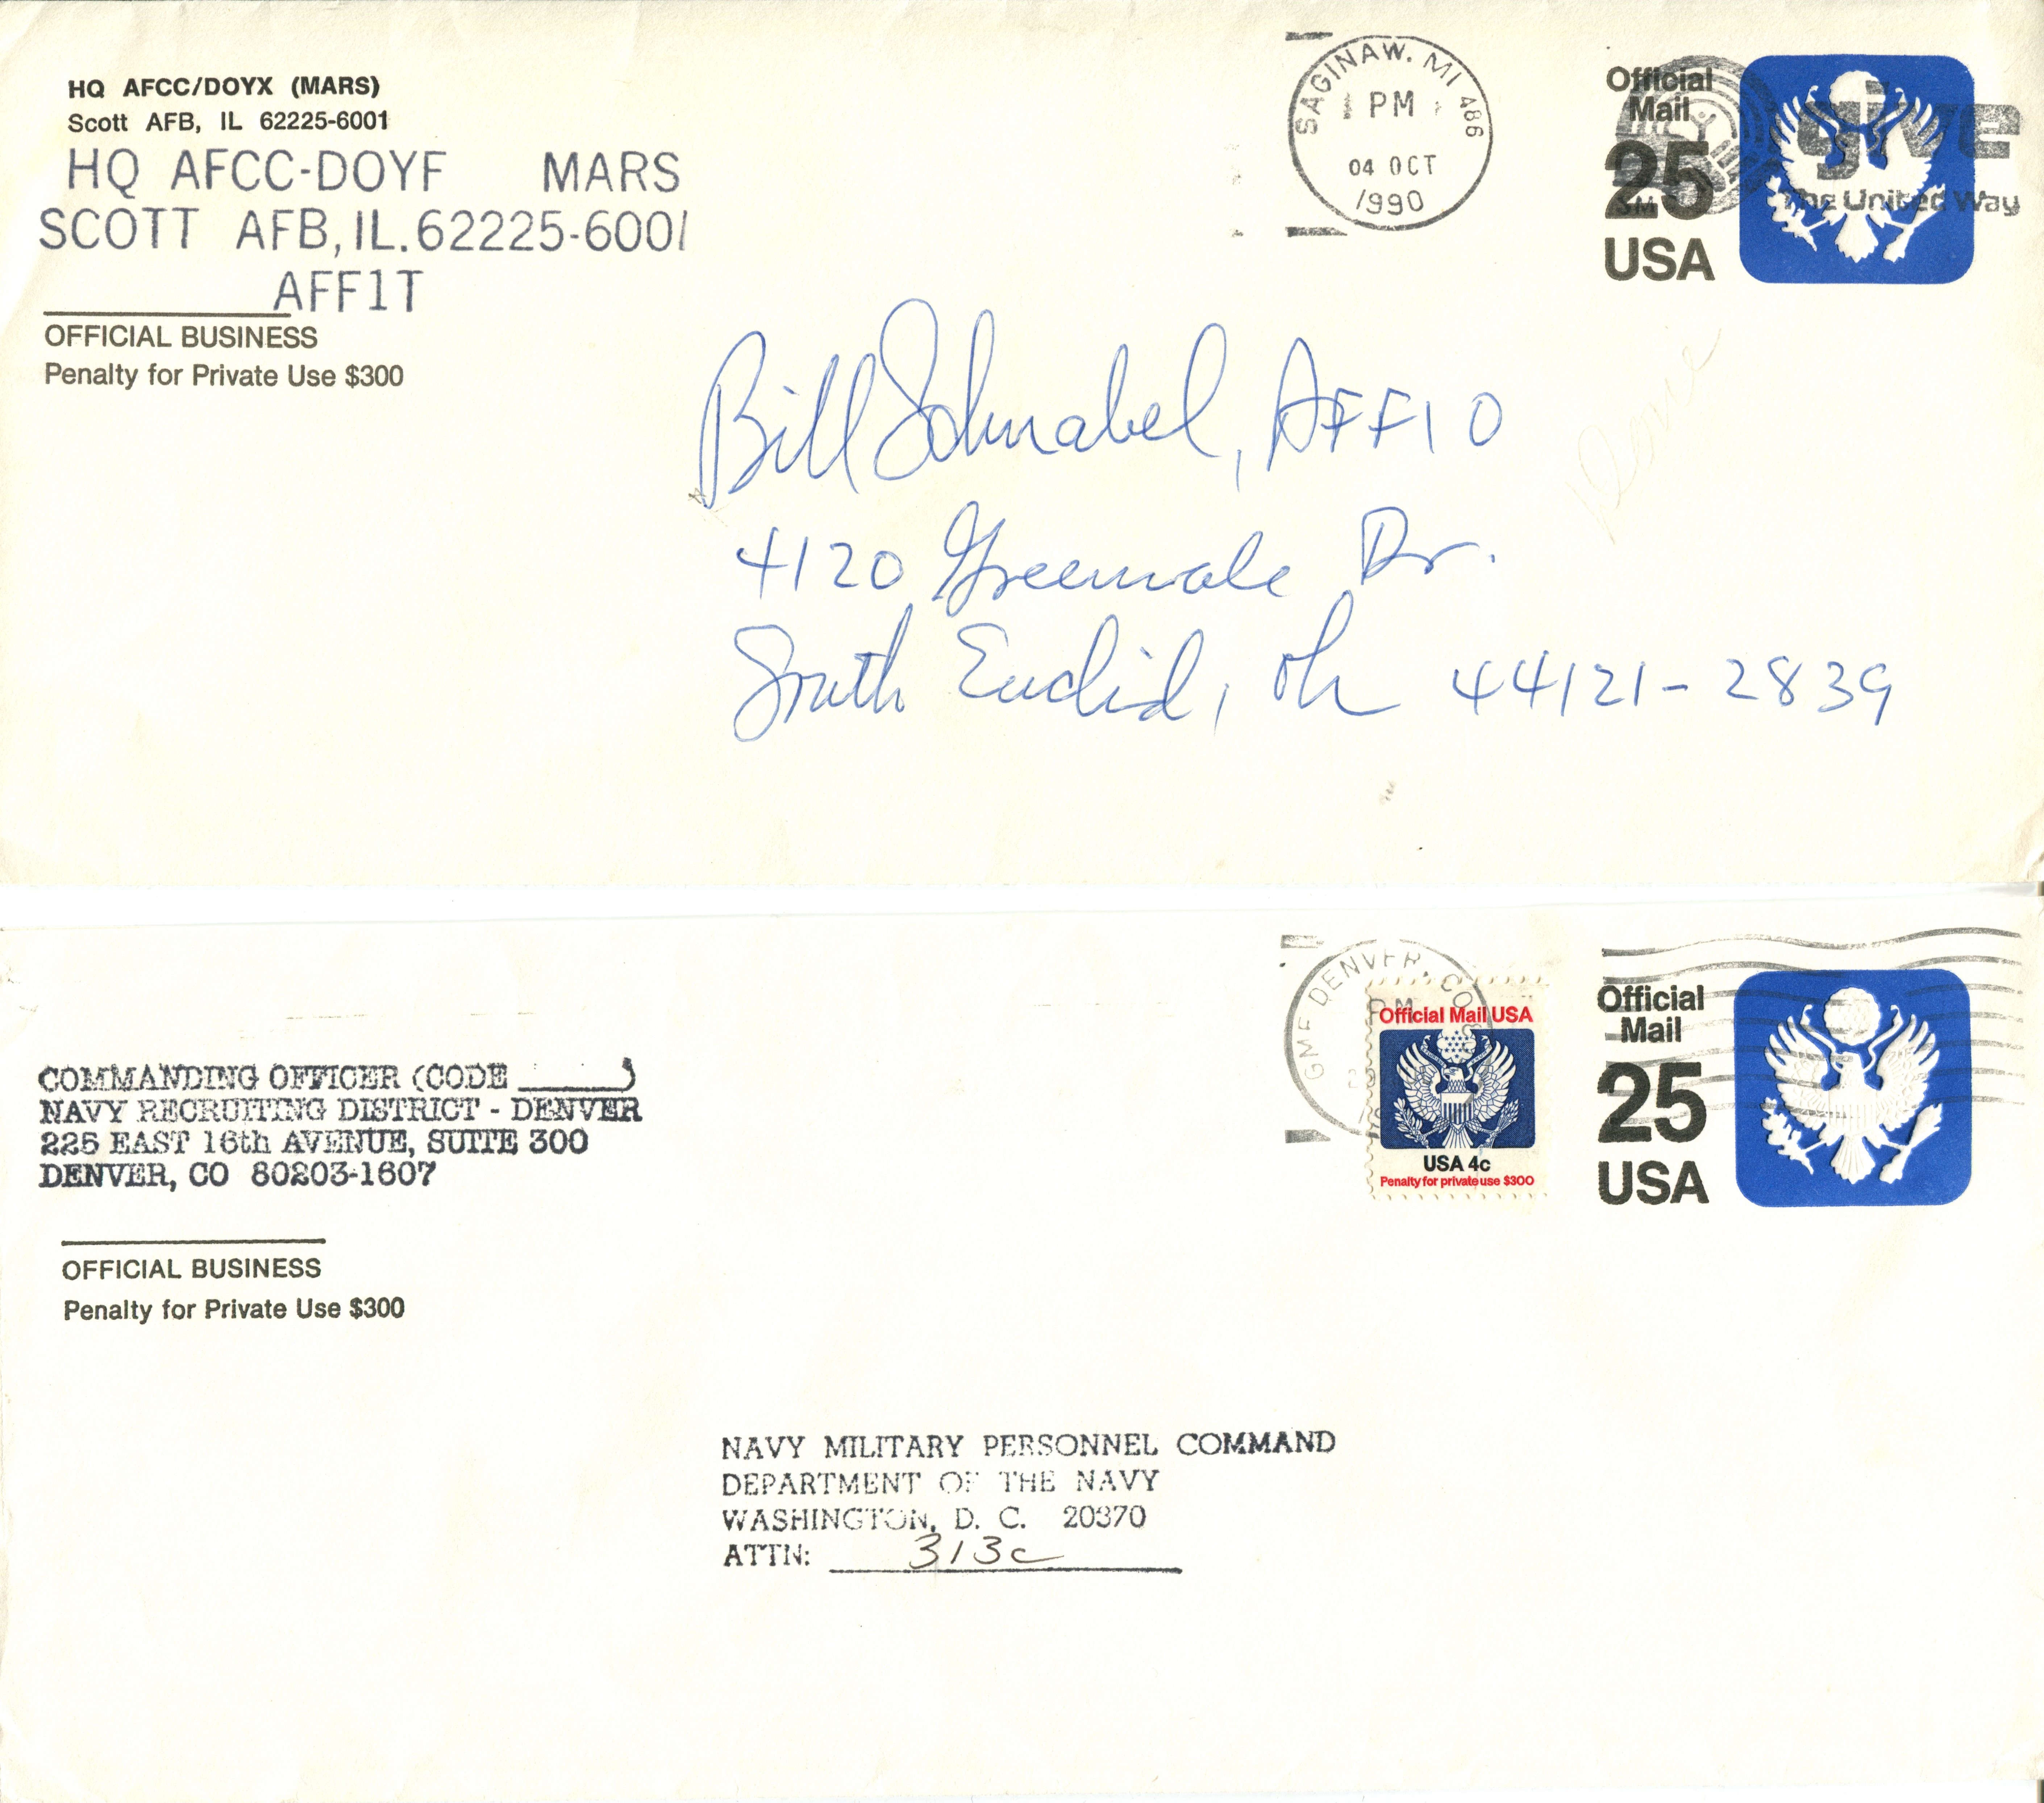 HQ AFCC/DOYX (MARS)
Scott AFB, IL 62225-6001
HQ AFCC-DOYF MARS
SCOTT AFB, IL. 62225-6001
AFF1T
OFFICIAL BUSINESS
Penalty for Private Use $300
SAGINAW, MI 486
PM
04 OCT
1990
Official
Mail
25
USA
give
The United Way
Bill Schnabel, AFF10
4120 Greenvale Dr.
South Euclid, Oh 44121-2839
COMMANDING OFFICER (CODE ______)
NAVY RECRUITING DISTRICT - DENVER
225 EAST 16th AVENUE, SUITE 300
DENVER, CO 80203-1607
OFFICIAL BUSINESS
Penalty for Private Use $300
GMF DENVER, CO
PM
Official Mail USA
USA 4c
Penalty for private use $300
Official
Mail
25
USA
NAVY MILITARY PERSONNEL COMMAND
DEPARTMENT OF THE NAVY
WASHINGTON, D. C. 20370
ATTN: 313c